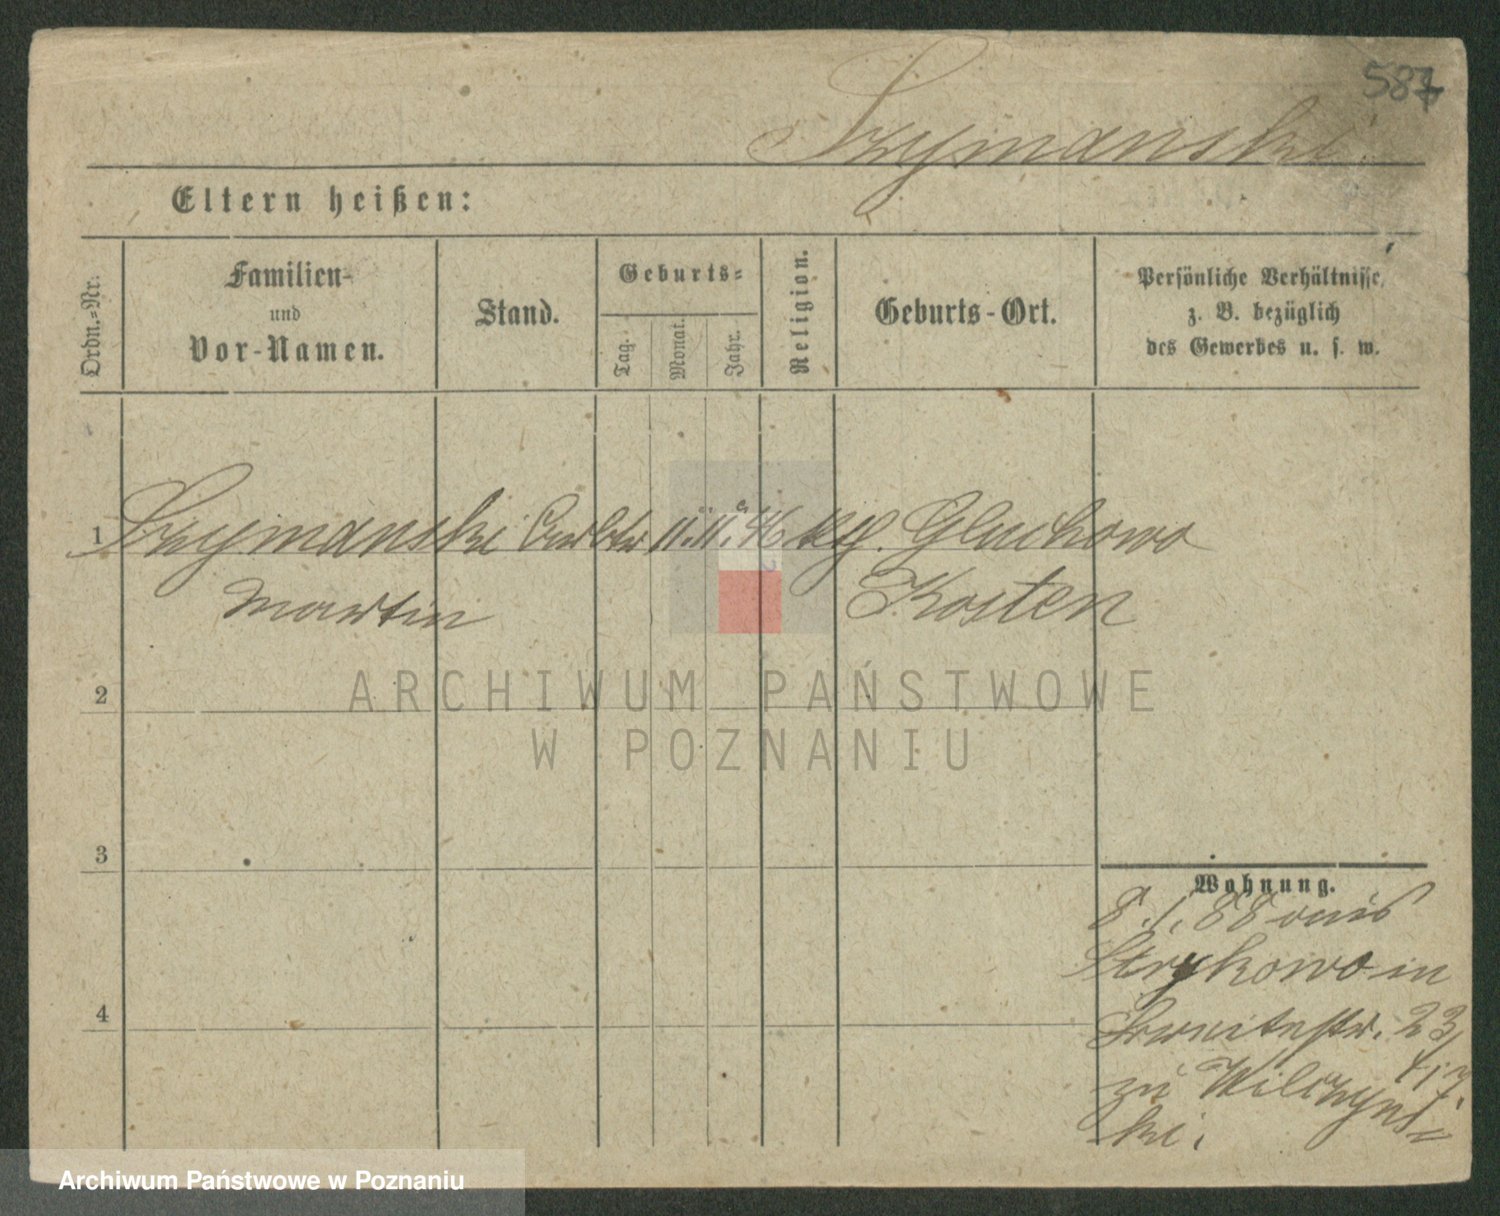 587
Szymanski
Eltern heißen:
Ordn.-Nr.
Familien-
und
Vor-Namen.
Stand.
Geburts-
Tag.
Monat.
Jahr.
Religion.
Geburts-Ort.
Persönliche Verhältnisse,
z. B. bezüglich
des Gewerbes u. s. w.
1 Szymanski 11. 11. 46 kth. Gluchowo
Martin Kosten
2
3
4
Wohnung.
8. 1. 88 aus
Strykowo in
23/
zu Wilczyns=
ki.
ARCHIWUM PAŃSTWOWE
W POZNANIU
Archiwum Państwowe w Poznaniu